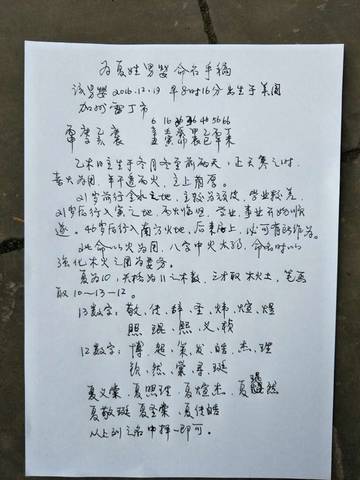 为夏姓男婴命名手稿
该男婴2016.12.19 早8时16分出生于美国
加州 雷丁市
6 16 26 36 46 56 66
丙申 庚子 乙亥 庚辰
乙木日主生于冬月冬至前两天,正大寒之时
喜火为用,年干透丙火,主上
21岁前行金水之地,主较为 ,学业较差,
21岁后行入寅之地,丙火临旺,学业,事业开始顺
遂。46岁后行入南方火地,后来居上,必可有所作为。
此命以火为用,八字中火太弱,命名时以
强化木火之用为要务。
夏为10,天格为11之木数,三才取木火土,笔画
取10—13—12。
13数字:敬、佳、 、圣、炜、煊、煜
照、琨、熙、义、祯
12数字:博、超、策、发、皓、杰、理
钦、然、棠、寻、珽
夏义棠、夏照理、夏煊杰、夏 然
夏敬珽 夏圣棠、夏佳皓
从上列之名中择一即可。